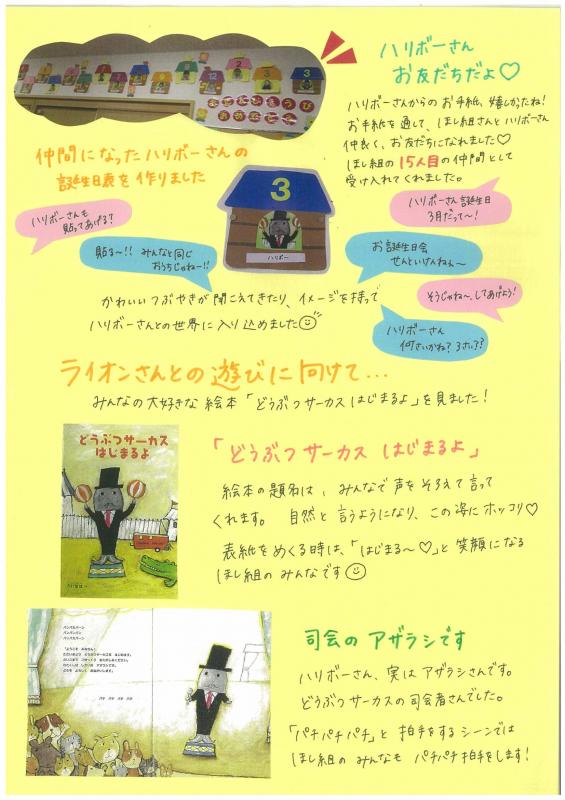 ハリボーさん
お友だちだよ♡
ハリボーさんからの お手紙、嬉しかったね!
お手紙を通して、ほし組さんと ハリボーさん
仲良く、お友だちになれました♡
ほし組の 15人目の 仲間として
受け入れてくれました。
仲間になったハリボーさんの
誕生日表を 作りました
3
ハリボー
ハリボーさんも
貼ってあげる?
貼る〜!! みんなと同じ
おうちじゃねー!!
ハリボーさん 誕生日
3月だって〜!
お誕生日会
せんといけんねぇ〜
そうじゃね〜、してあげよう!
ハリボーさん
何さいかね? 3さい??
かわいい つぶやきが 聞こえてきたり、イメージを持って
ハリボーさんとの世界に 入り込めました
ライオンさんとの 遊びに 向けて...
みんなの大好きな 絵本「どうぶつサーカス はじまるよ」を 見ました!
どうぶつサーカス
はじまるよ
「どうぶつ サーカス はじまるよ」
絵本の題名は、みんなで 声を そろえて 言って
くれます。 自然と 言うようになり、この姿に ホッコリ♡
表紙を めくる時は、「はじまる〜♡」と 笑顔になる
ほし組の みんなです
司会の アザラシです
ハリボーさん、実は アザラシさんです。
どうぶつサーカスの 司会者さんでした。
「パチパチパチ」と 拍手をする シーンでは
ほし組の みんなも パチパチ 拍手をします!
パンパカパーン
パンパンパン
パンパカパーン
パチ パチ パチ パチ